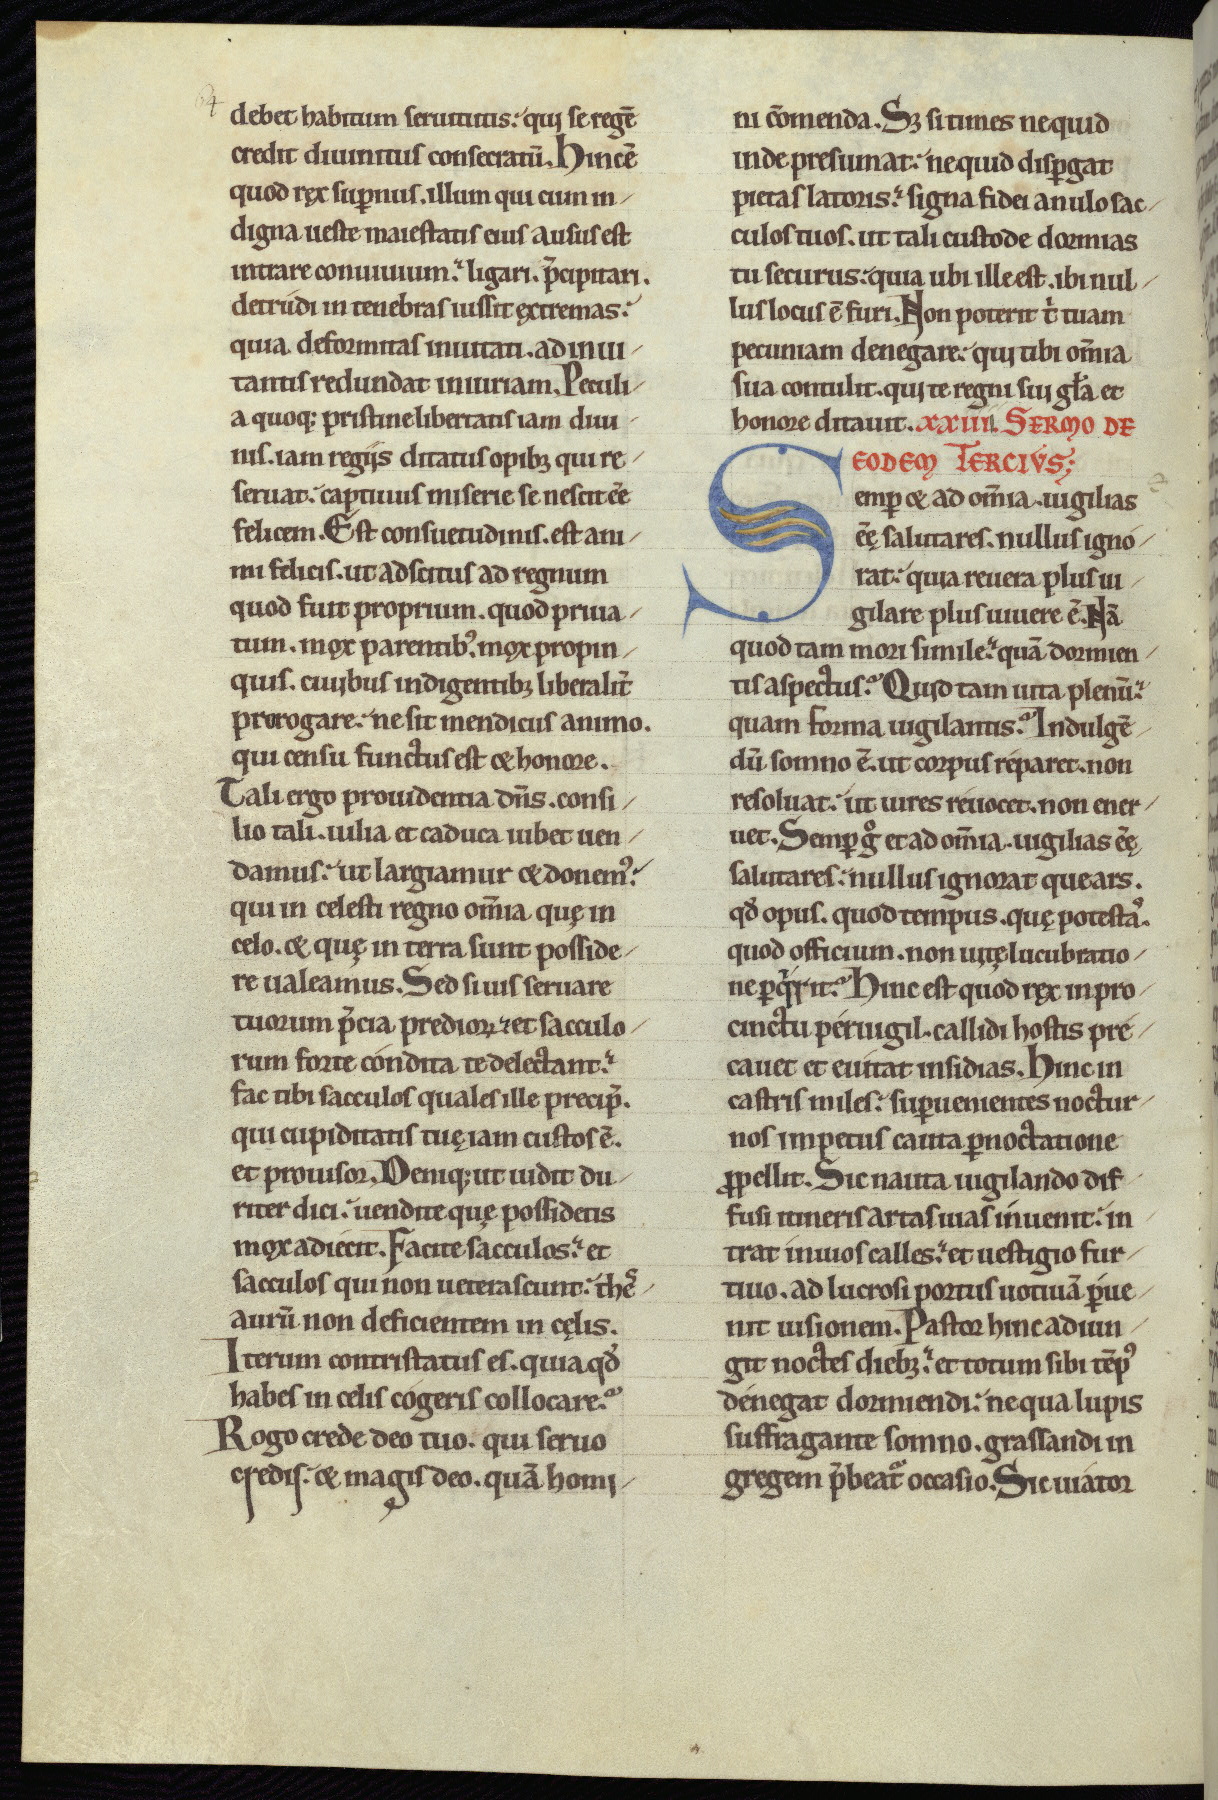 64
debet habitum seruitutis: quj se regē
credit diuinitus consecratū. Hinc ē
quod rex supnus. illum qui cum in-
digna ueste maiestatis eius ausus est
intrare conuiuium: ligari. p̄cipitari.
detrudi in tenebras iussit extremas:
quia deformitas inuitati. ad inui-
tantis redundat iniuriam. Peculi-
a quoq; pristine libertatis iam diui-
nis. iam regijs ditatus opibꝫ qui re-
seruat: captiuus miserie se nescit ēē
felicem. Est consuetudinis. est ani-
mi felicis. ut adscitus ad regnum
quod fuit proprium. quod priua-
tum. mox parentibꝰ. mox propin-
quis. ciuibus indigentibꝫ liberalit̄
prerogare: ne sit mendicus animo.
qui censu functus est & honore.
Tali ergo prouidentia dn̄s. consi-
lio tali. uilia et caduca iubet uen-
damus: ut largiamur & donemꝰ:
qui in celesti regno om̄ia quę in
celo. & quę in terra sunt posside-
re ualeamus. Sed si uis seruare
tuorum p̄cia predioꝝ: et sacculo-
rum forte condita te delectant:
fac tibi sacculos quales ille precip̄.
qui cupiditatis tuę iam custos ē.
et prouisor. Deniq; ut uidit du-
riter dici: uendite quę possidetis
mox adiecit. Facite sacculos: et
sacculos qui non ueterascunt: thes-
aurū non deficientem in cęlis.
Iterum contristatus es. quia qd̄
habes in celis cogeris collocare:
Rogo crede deo tuo. qui seruo
credis: & magis deo. quā homi-
ni cōmenda. Sꝫ si times ne quid
inde presumat: ne quid disꝑgat
pietas latoris: signa fidei anulo sac-
culos tuos. ut tali custode dormias
tu securus: quia ubi ille est. ibi nul-
lus locus ē furi. Non poterit t̄ tuam
pecuniam denegare: quj tibi om̄ia
sua contulit. quj te regni sui gl̄a et
honore ditauit. XXIIII. SERMO DE
EODEM TERCIVS;
Semꝑ & ad om̄ia. uigilias
ēę salutares. nullus igno-
rat: quia reuera plus ui-
gilare plus uiuere ē. Nā
quod tam mori simile: quā dormien-
tis aspectus: Quid tam uita plenū:
quam forma uigilantis: Indulgē-
dū somno ē. ut corpus reparet. non
resoluat: ut uires reuocet. non ener-
uet. Semꝑ g̊ et ad om̄ia. uigilias ēę
salutares: nullus ignorat que ars.
qd̄ opus. quod tempus. quę potestaˢ.
quod officium. non uitę lucubratio-
ne ꝑqͥrit: Hinc est quod rex in pro-
cinctu peruigil. callidi hostis pre-
cauet et euitat insidias. Hinc in
castris miles: suꝑuenientes noctur-
nos impetus cauta ꝑnoctatione
ꝓpellit. Sic nauta uigilando dif-
fusi itineris artas uias inuenit: in-
trat inuios calles: et uestigio fur-
tiuo. ad lucrosi portus uotiuā ꝑue-
nit uisionem. Pastor hinc adiun-
git noctes diebꝫ: et totum sibi tēpꝰ
denegat dormiendi: ne qua lupis
suffragante somno. grassandi in
gregem p̄beatᷓ occasio. Sic uiator